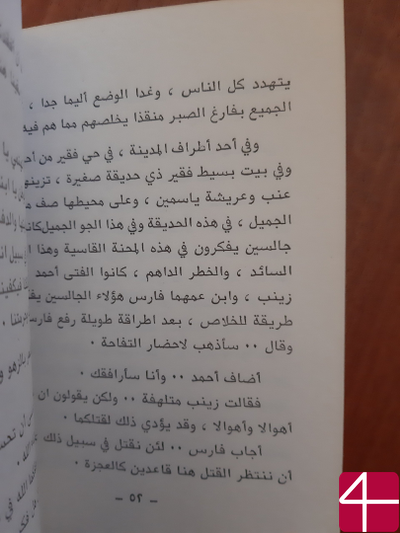 يتهدد كل الناس ، وغدا الوضع أليما جدا ،
الجميع بفارغ الصبر منقذا يخلصهم مما هم فيه
وفي أحد أطراف المدينة ، في حي فقير من أحد
وفي بيت بسيط فقير ذي حديقة صغيرة ، تزينها
عنب وعريشة ياسمين ، وعلى محيطها صف م
الجميل ، في هذه الحديقة وفي هذا الجو الجميل كانت
جالسين يفكرون في هذه المحنة القاسية وهذا ا
السائد ، والخطر الداهم ، كانوا الفتى أحمد
زينب ، وابن عمهما فارس هؤلاء الجالسين يفك
طريقة للخلاص ، بعد اطراقة طويلة رفع فارس
وقال ٠٠ سأذهب لاحضار التفاحة ٠
أضاف أحمد ٠٠ وأنا سأرافقك ٠
فقالت زينب متلهفة ٠٠ ولكن يقولون ان
أهوالا وأهوالا ، وقد يؤدي ذلك لقتلكما ٠
أجاب فارس ٠٠ لئن نقتل في سبيل ذلك
أن ننتظر القتل هنا قاعدين كالعجزة ٠
– ٥٢ –